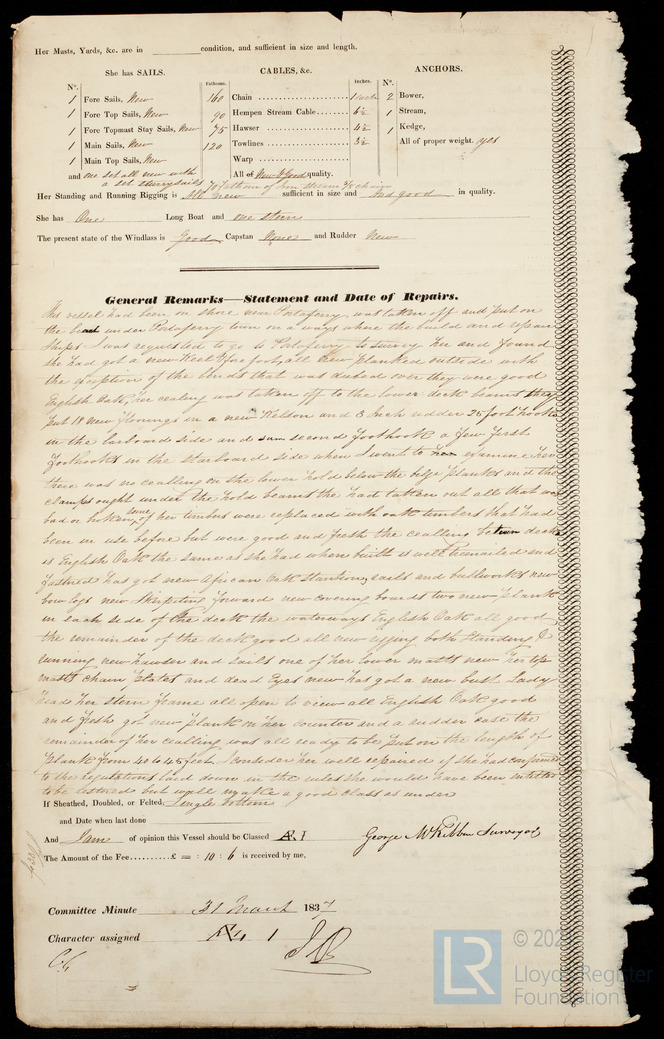 Her Masts, Yards, &c. are in ______ condition, and sufficient in size and length.
She has SAILS. CABLES, &c. ANCHORS.
No. Fathoms. Inches. No.
1 Fore Sails, New 160 Chain 1 inch 2 Bower,
1 Fore Top Sails, New 90 Hempen Stream Cable 6½ 1 Stream,
1 Fore Topmast Stay Sails, New 75 Hawser 4½ 1 Kedge,
1 Main Sails, New 120 Towlines 3½ All of proper weight. yes
1 Main Top Sails, New Warp
and one set all new with All of New & Good quality.
a set steering sails 70 fathom of Iron stream chain
Her Standing and Running Rigging is All new sufficient in size and And good in quality.
She has One Long Boat and one stern
The present state of the Windlass is good Capstan None and Rudder New
General Remarks—Statement and Date of Repairs.
This vessel had been on shore near Portaferry was taken off and put on
the beach under Portaferry town on a ways where the build and repair
Ships I was requested to go to Portaferry to survey her and found
she had got a new Keel & fore foot, all New planked outside with
the exception of the bends that was dubed over they were good
English Oak, her cealing was taken off to the lower deck beams they
put 18 new floorings in a new Kelson and 3 Inch rudder 25 foot hooks
in the larboard side and second foothook a few first
foothooks in the starboard side when I went to examine her
there was no cealling on the lower hold below the bilge planks and the
clamps ought under the hold beams the had tatken out all that was
bad or broken, some of her timbers were replaced with oak timbers that had
been in use before but were good and fresh the cealling between decks
is English Oak the same as she had when built is well treenailed and
fastned has got new African Oak Stantions, rails and bullworks new
bow legs new Skirting forward new covering boards two new plank
in each side of the deck the waterways English Oak all good
the remainder of the deck good all new rigging both standing &
running new hawser and sails one of her lower masts new her top
masts chain Plates and dead Eyes new has got a new bust Lady
head her stern frame all open to view all English Oak good
and fresh got new plank on her counter and a rudder case the
remainder of her cealling was all ready to be put on the length of
plank from 40 to 45 feet I consider her well repaired if she had conformed
to the regulations laid down in the rules she would have been intitled
to be restored but will make a good class as under
If Sheathed, Doubled, or Felted, Single bottom
and Date when last done
And I am of opinion this Vessel should be Classed Æ 1 George McKibbin Surveyor
The Amount of the Fee £ = : 10 : 6 is received by me,
Committee Minute 31 March 1837
Character assigned Æ 1
© 202
Lloyd's Register
Foundation
LR